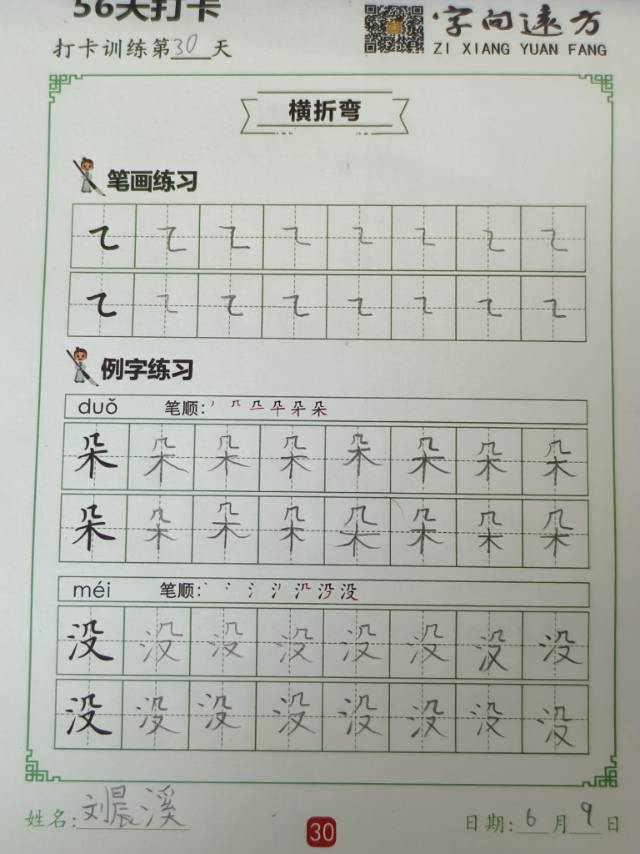 56天打卡
打卡训练第30天
字向远方
ZI XIANG YUAN FANG
横折弯
笔画练习
例字练习
duǒ 笔顺:
朵 朵 朵 朵 朵 朵 朵 朵
朵 朵 朵 朵 朵 朵 朵 朵
méi 笔顺:
没 没 没 没 没 没 没 没
没 没 没 没 没 没 没 没
姓名:刘晨溪
30
日期:6月9日